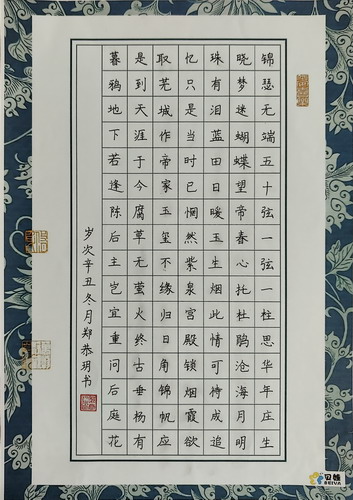 锦瑟无端五十弦一弦一柱思华年庄生
晓梦迷蝴蝶望帝春心托杜鹃沧海月明
珠有泪蓝田日暖玉生烟此情可待成追
忆只是当时已惘然紫泉宫殿锁烟霞欲
取芜城作帝家玉玺不缘归日角锦帆应
是到天涯于今腐草无萤火终古垂杨有
暮鸦地下若逢陈后主岂宜重问后庭花
岁次辛丑冬月郑恭玥书